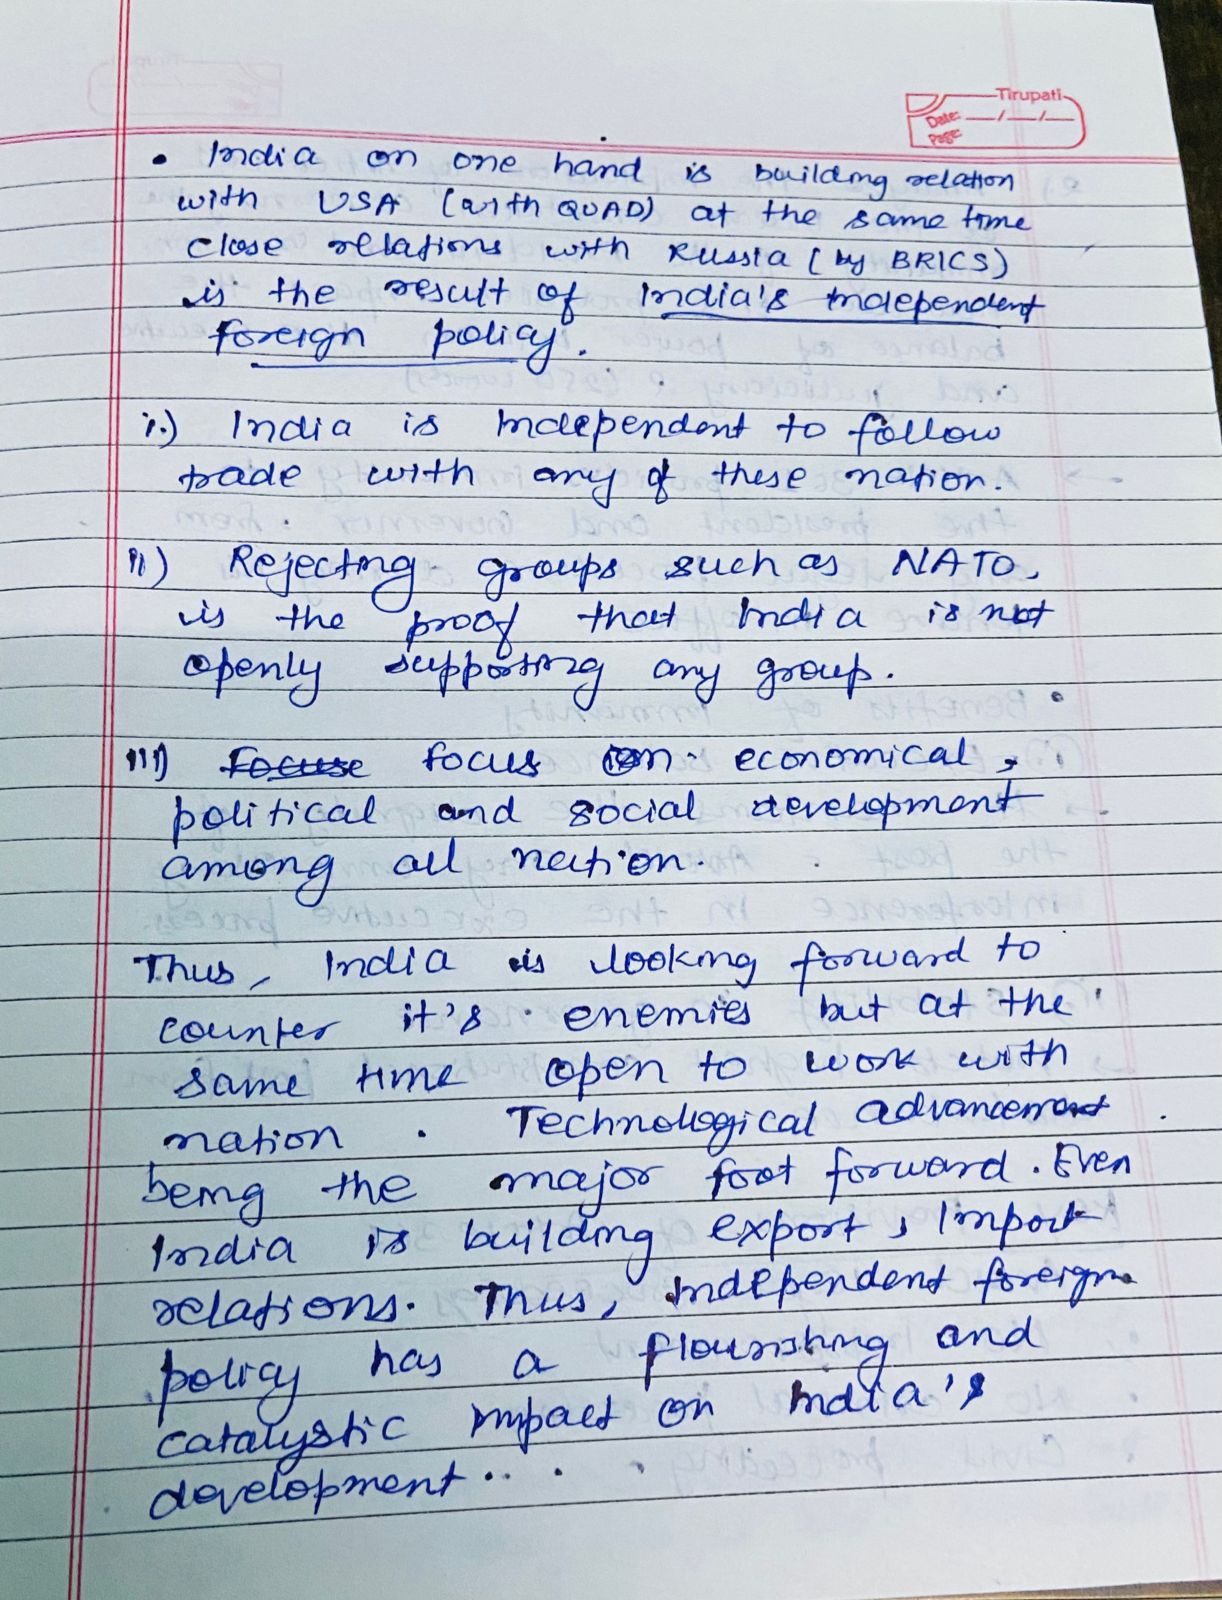 Tirupati
Date: __/__/__
Page:
• India on one hand is building relation
with USA (with QUAD) at the same time
close relations with Russia (by BRICS)
is the result of India's independent
foreign policy.
i.) India is independent to follow
trade with any of these nation.
ii) Rejecting groups such as NATO,
is the proof that India is not
openly supporting any group.
iii) Focuse focus on economical,
political and social development
among all nation.
Thus, India is looking forward to
counter it's enemies but at the
same time open to work with
nation. Technological advancement
being the major foot forward. Even
India is building export, import
relations. Thus, independent foreign
policy has a flourishing and
catalystic impact on India's
development..